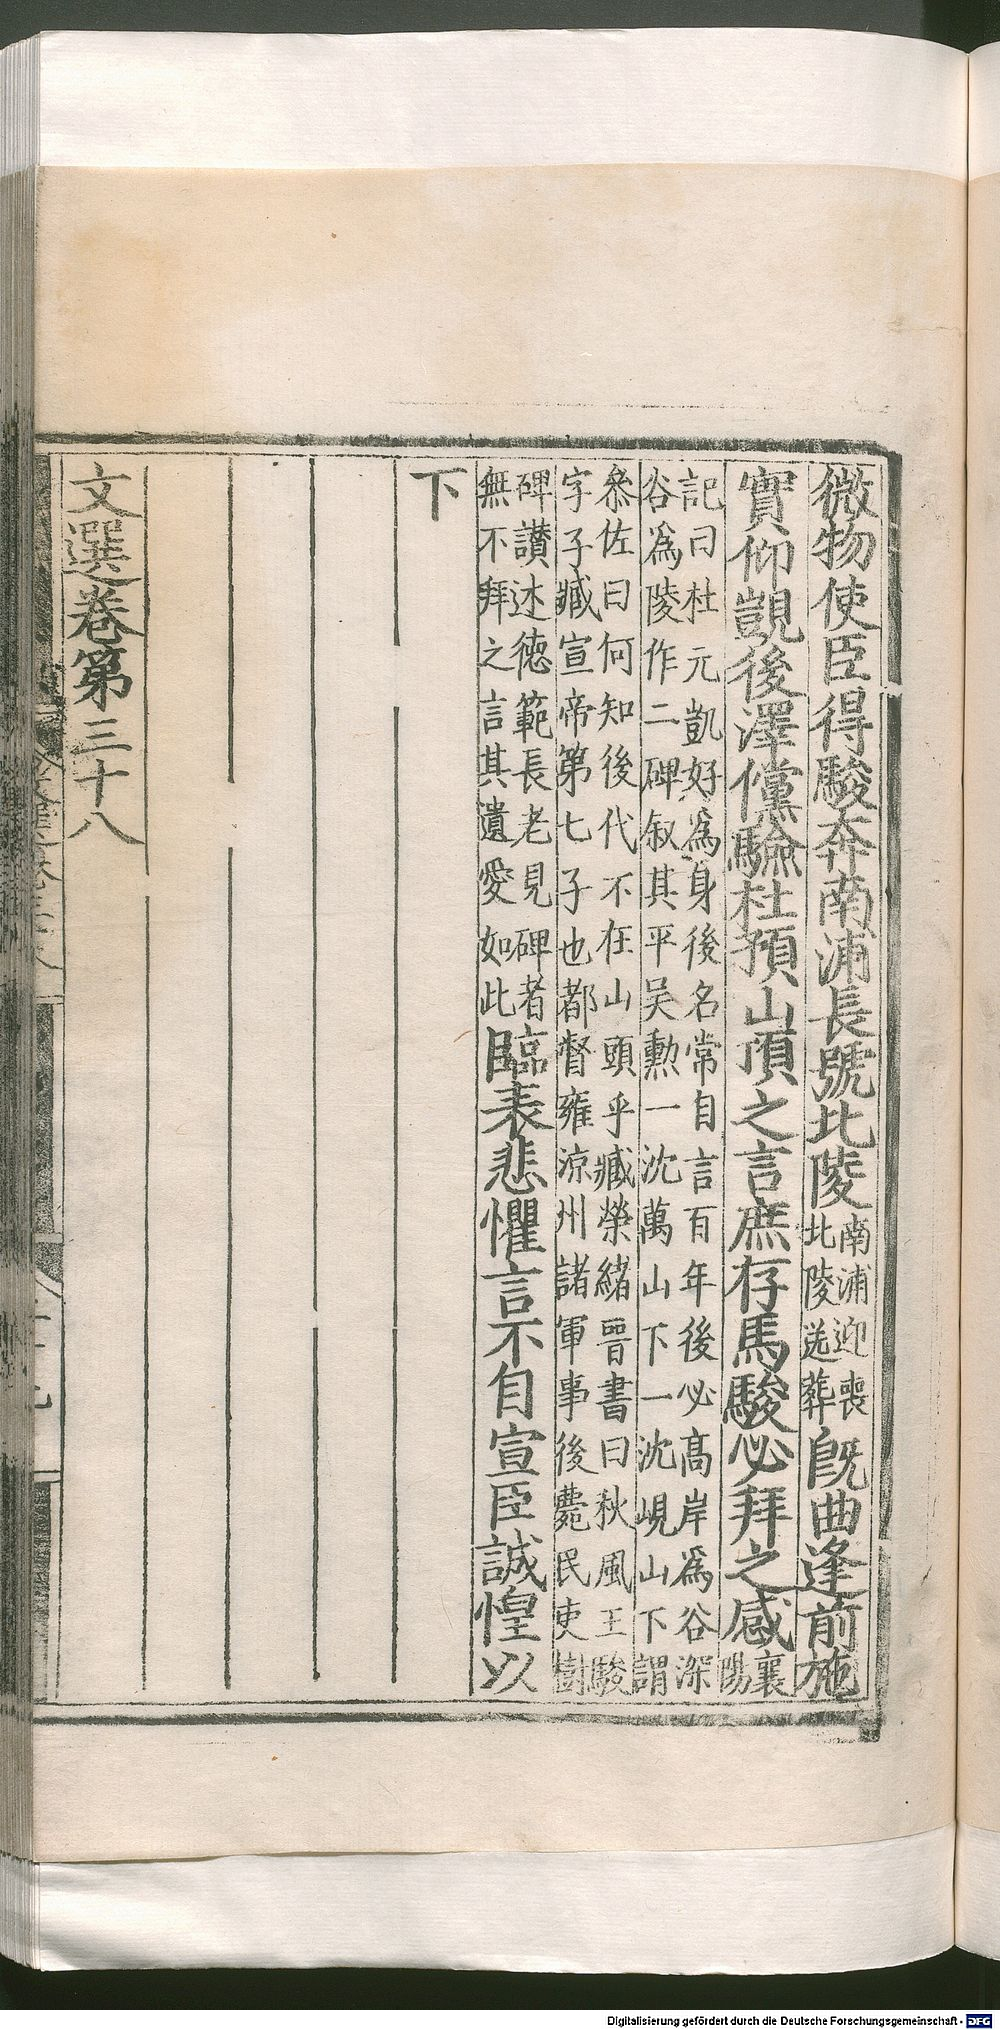 微物使臣得駿奔南浦長號北陵南浦迎喪北陵送葬旣曲逢前施
實仰覬後澤儻驗杜預山頂之言庶存馬駿必拜之感襄陽
記曰杜元凱好爲身後名常自言百年後必高岸爲谷深
谷爲陵作二碑叙其平吴勲一沈萬山下一沈峴山下謂
叅佐曰何知後代不在山頭乎臧榮緒晉書曰秋風王駿
字子臧宣帝第七子也都督雍涼州諸軍事後薨民吏樹
碑讃述德範長老見碑者
無不拜之言其遺愛如此臨表悲懼言不自宣臣誠惶以
下
文選卷第三十八
Digitalisierung gefördert durch die Deutsche Forschungsgemeinschaft - DFG